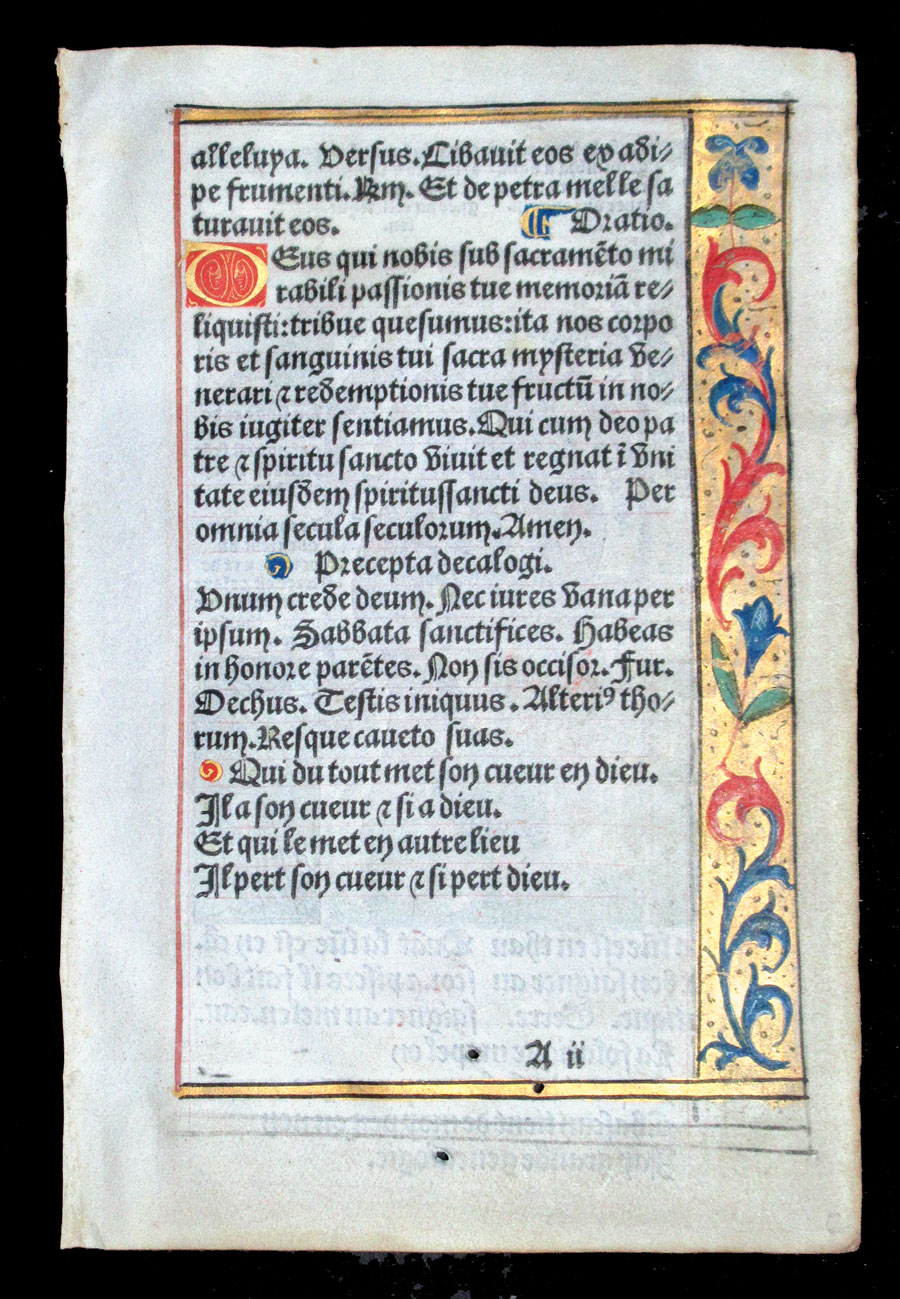 alleluya. Versus. Cibavit eos ex adi⸗
pe frumenti. Rm̃. Et de petra melle sa
turavit eos. Oratio.
Deus qui nobis sub sacramẽto mi
rabili passionis tue memoriã re⸗
liquisti: tribue quesumus: ita nos corpo
ris et sanguinis tui sacra mysteria ve⸗
nerari ⁊ redemptionis tue fructũ in no⸗
bis iugiter sentiamus. Qui cum deo pa
tre ⁊ spiritu sancto vivit et regnat ĩ vni
tate eiusdem spiritussancti deus. Per
omnia secula seculorum. Amen.
Precepta decalogi.
Vnum crede deum. Nec iures vana per
ipsum. Sabbata sanctifices. Habeas
in honore parẽtes. Non sis occisor. Fur.
Mechus. Testis iniquus. Alteriꝰ tho⸗
rum. Resque caveto suas.
Qui du tout met son cueur en dieu.
Il a son cueur ⁊ si a dieu.
Et qui le met en autre lieu
Il pert son cueur ⁊ si pert dieu.
A ii